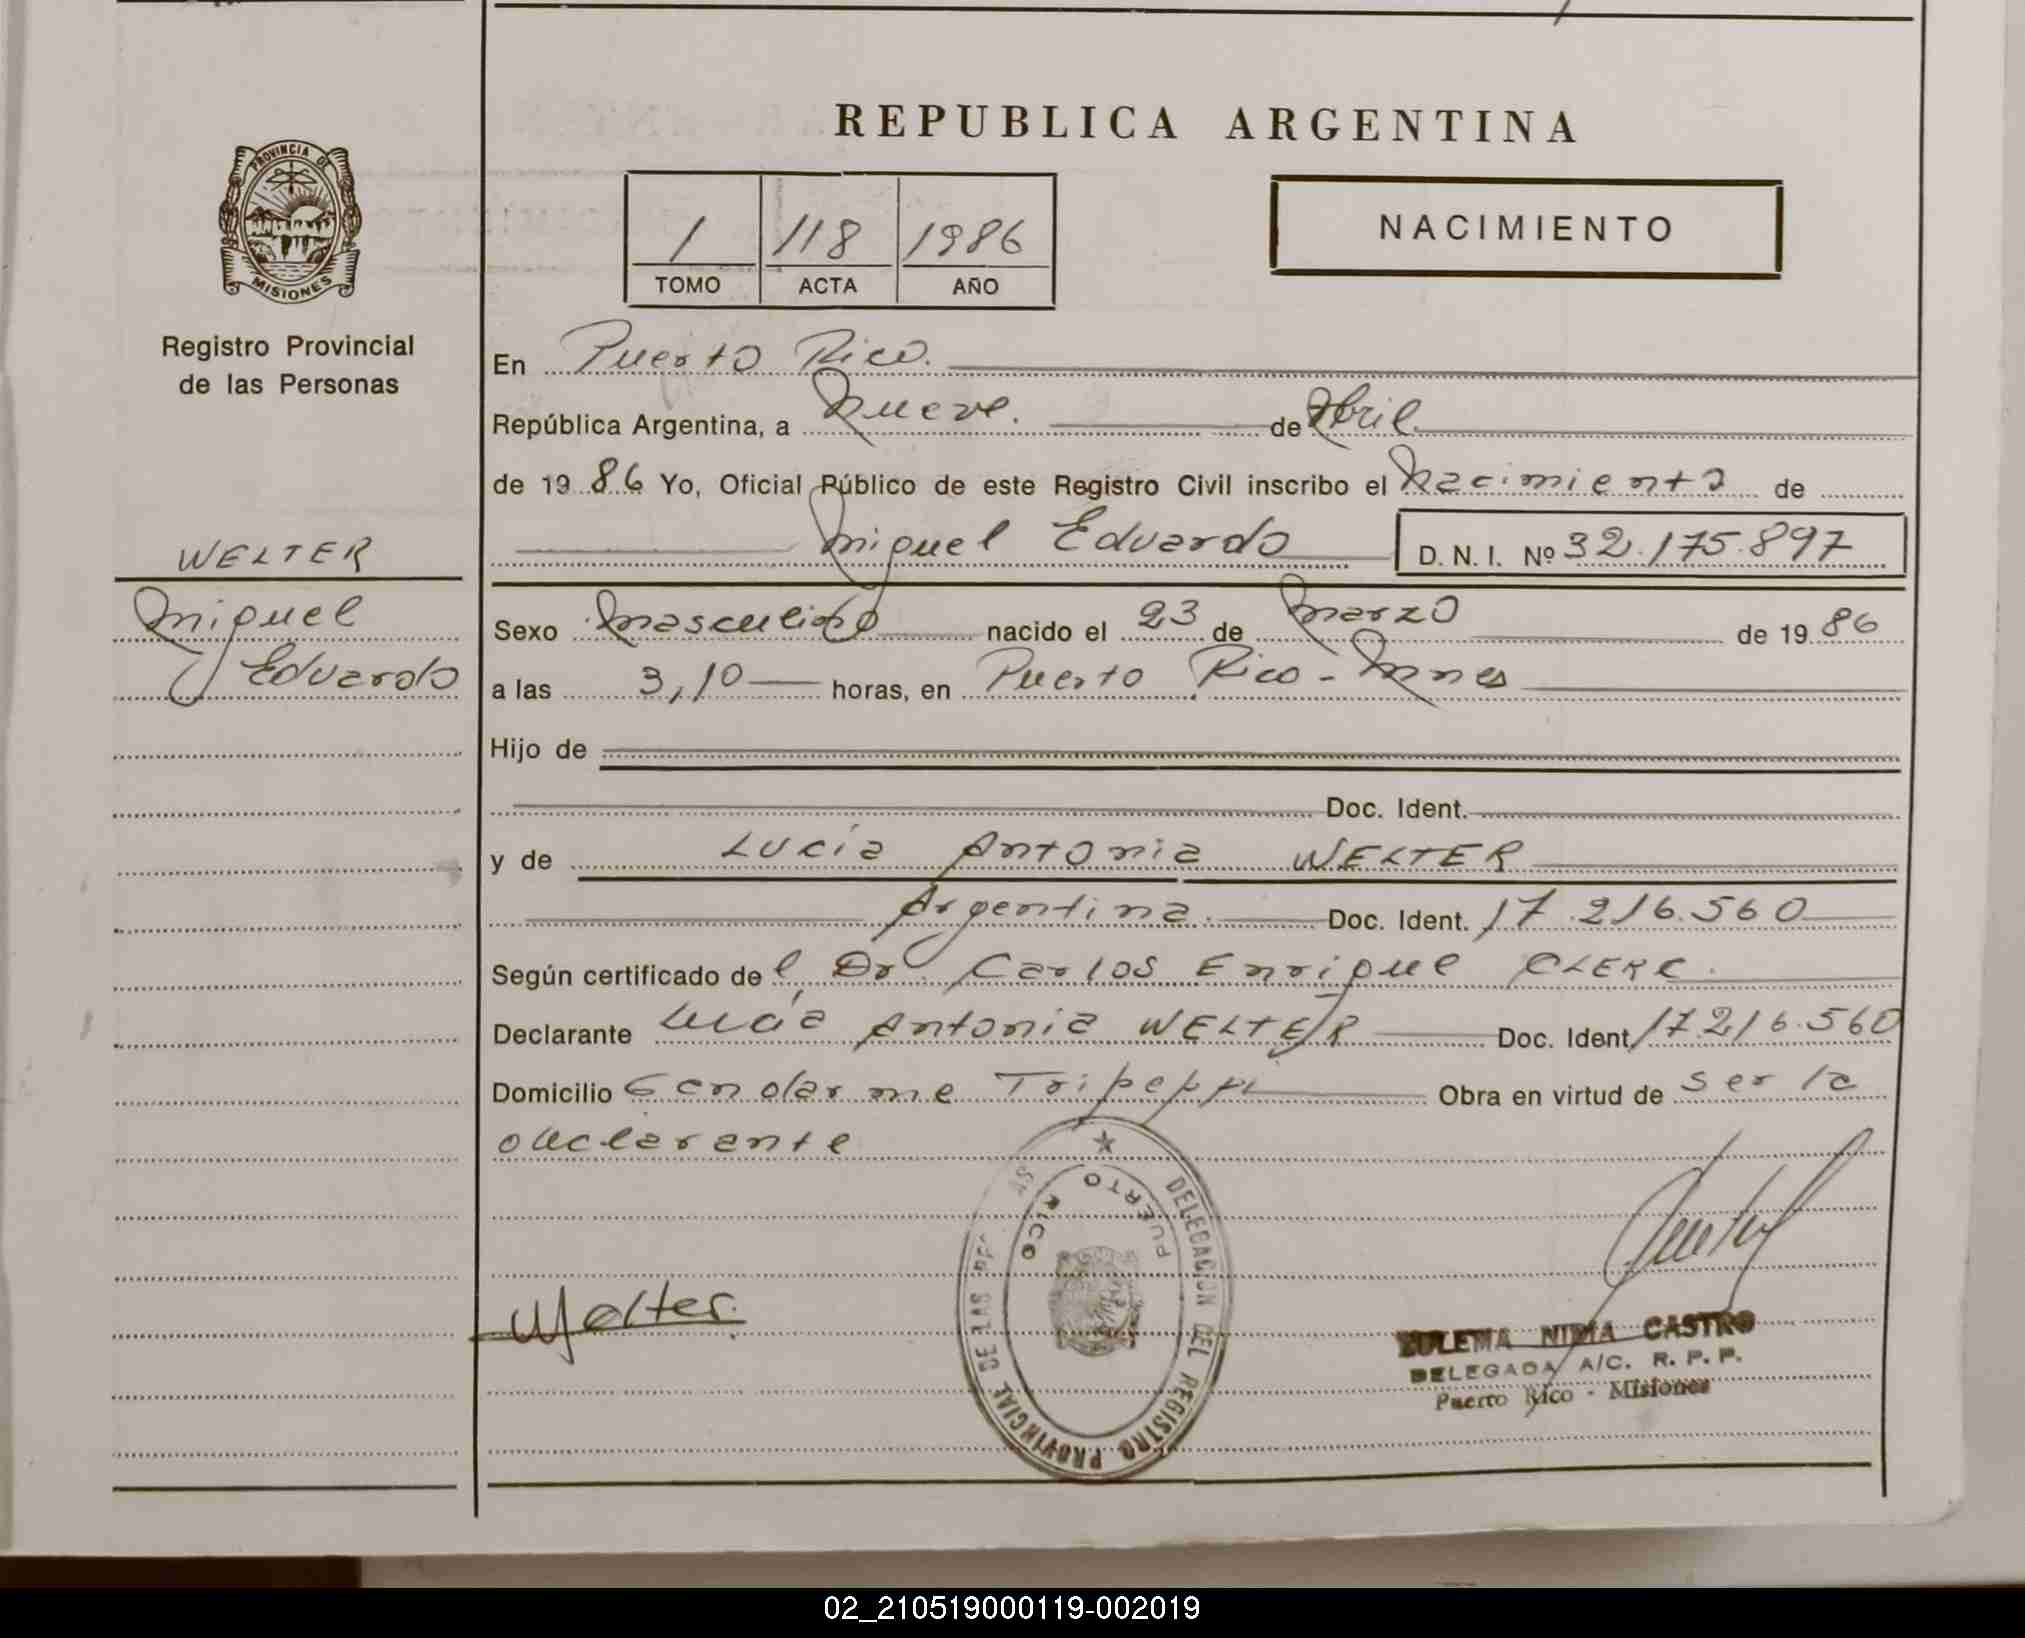 REPUBLICA ARGENTINA
PROVINCIA DE
MISIONES
Registro Provincial
de las Personas
1 118 1986
TOMO ACTA AÑO
NACIMIENTO
WELTER
Miguel
Eduardo
En Puerto Rico.
República Argentina, a Nueve. de Abril
de 1986 Yo, Oficial Público de este Registro Civil inscribo el Nacimiento de
Miguel Eduardo D. N. I. Nº 32.175.897
Sexo Masculino nacido el 23 de Marzo de 1986
a las 3,10 horas, en Puerto Rico - Mnes
Hijo de
Doc. Ident.
y de Lucía Antonia WELTER
Argentina. Doc. Ident. 17.216.560
Según certificado del Dr. Carlos Enrique CLERC.
Declarante Lucía Antonia WELTER Doc. Ident. 17.216.560
Domicilio Gendarme Tripeppi Obra en virtud de ser la
declarante
DELEGACION DEL REGISTRO PROVINCIAL DE LAS
PUERTO RICO
Welter.
ZULEMA NIDIA CASTRO
DELEGADA A/C. R. P. P.
Puerto Rico - Misiones
02_210519000119-002019